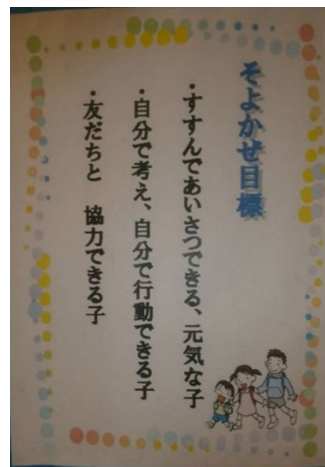 そよかぜ目標
・すすんであいさつできる、元気な子
・自分で考え、自分で行動できる子
・友だちと　協力できる子